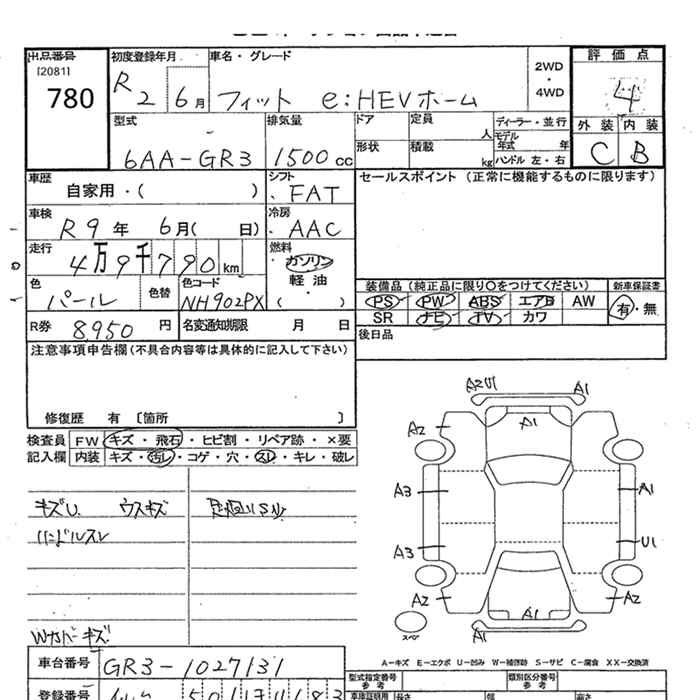 出品番号
[2081]
780
初度登録年月
R 2 6月
車名・グレード
フィット e:HEVホーム
2WD
・
4WD
評価点
4
外装 内装
C B
型式
6AA-GR3
排気量
1500 cc
ドア
形状
定員 人
積載 kg
ディーラー・並行
モデル年式 年
ハンドル 左・右
車歴
自家用・( )
シフト
FAT
セールスポイント(正常に機能するものに限ります)
車検
R9年 6月( 日)
冷房
AAC
走行
4万9千790km
燃料
ガソリン
軽油
・( )
色
パール
色替
色コード
NH902PX
装備品(純正品に限り○をつけてください)
PS PW ABS エアB AW
SR ナビ TV カワ
新車保証書
有・無
R券 8,950 円
名変通知期限 月 日
後日品
注意事項申告欄(不具合内容等は具体的に記入して下さい)
修復歴 有 〔箇所 〕
検査員 FW キズ・飛石・ヒビ割・リペア跡・×要
記入欄 内装 キズ・汚レ・コゲ・穴・スレ・キレ・破レ
キズU ウスキズ
ハンドルスレ
Wカバーキズ
A2U1 A1
A2 A1
A3 A1
A3 U1
A2 A1 A2
A1
スペア
A-キズ E-エクボ U-凹み W-補修跡 S-サビ C-腐食 XX-交換済
車台番号 GR3-1027131
型式指定番号
参考
類別区分番号
参考
登録番号
車庫証明用 長さ 幅 高さ